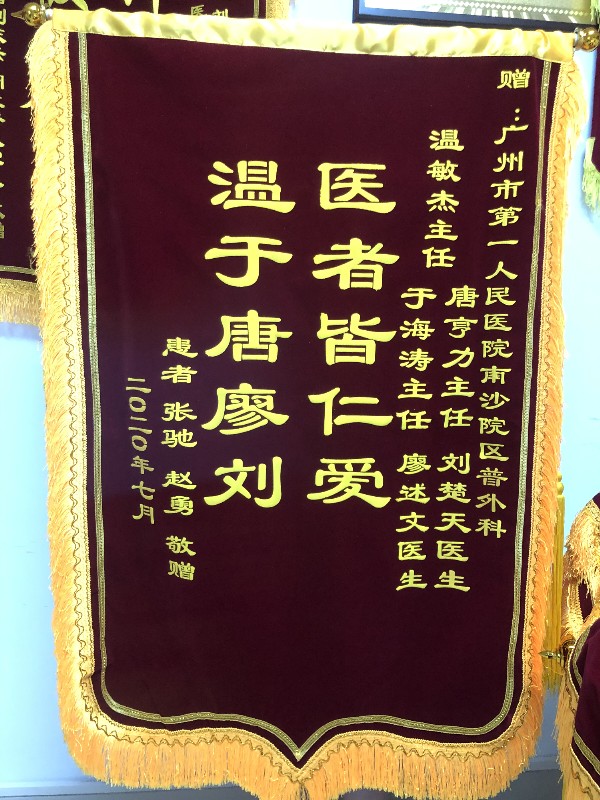 赠：广州市第一人民医院南沙院区普外科
温敏杰主任 唐亨力主任 刘楚天医生
于海涛主任 廖述文医生
医者皆仁爱
温于唐廖刘
患者 张驰 赵勇 敬赠
二〇二〇年七月